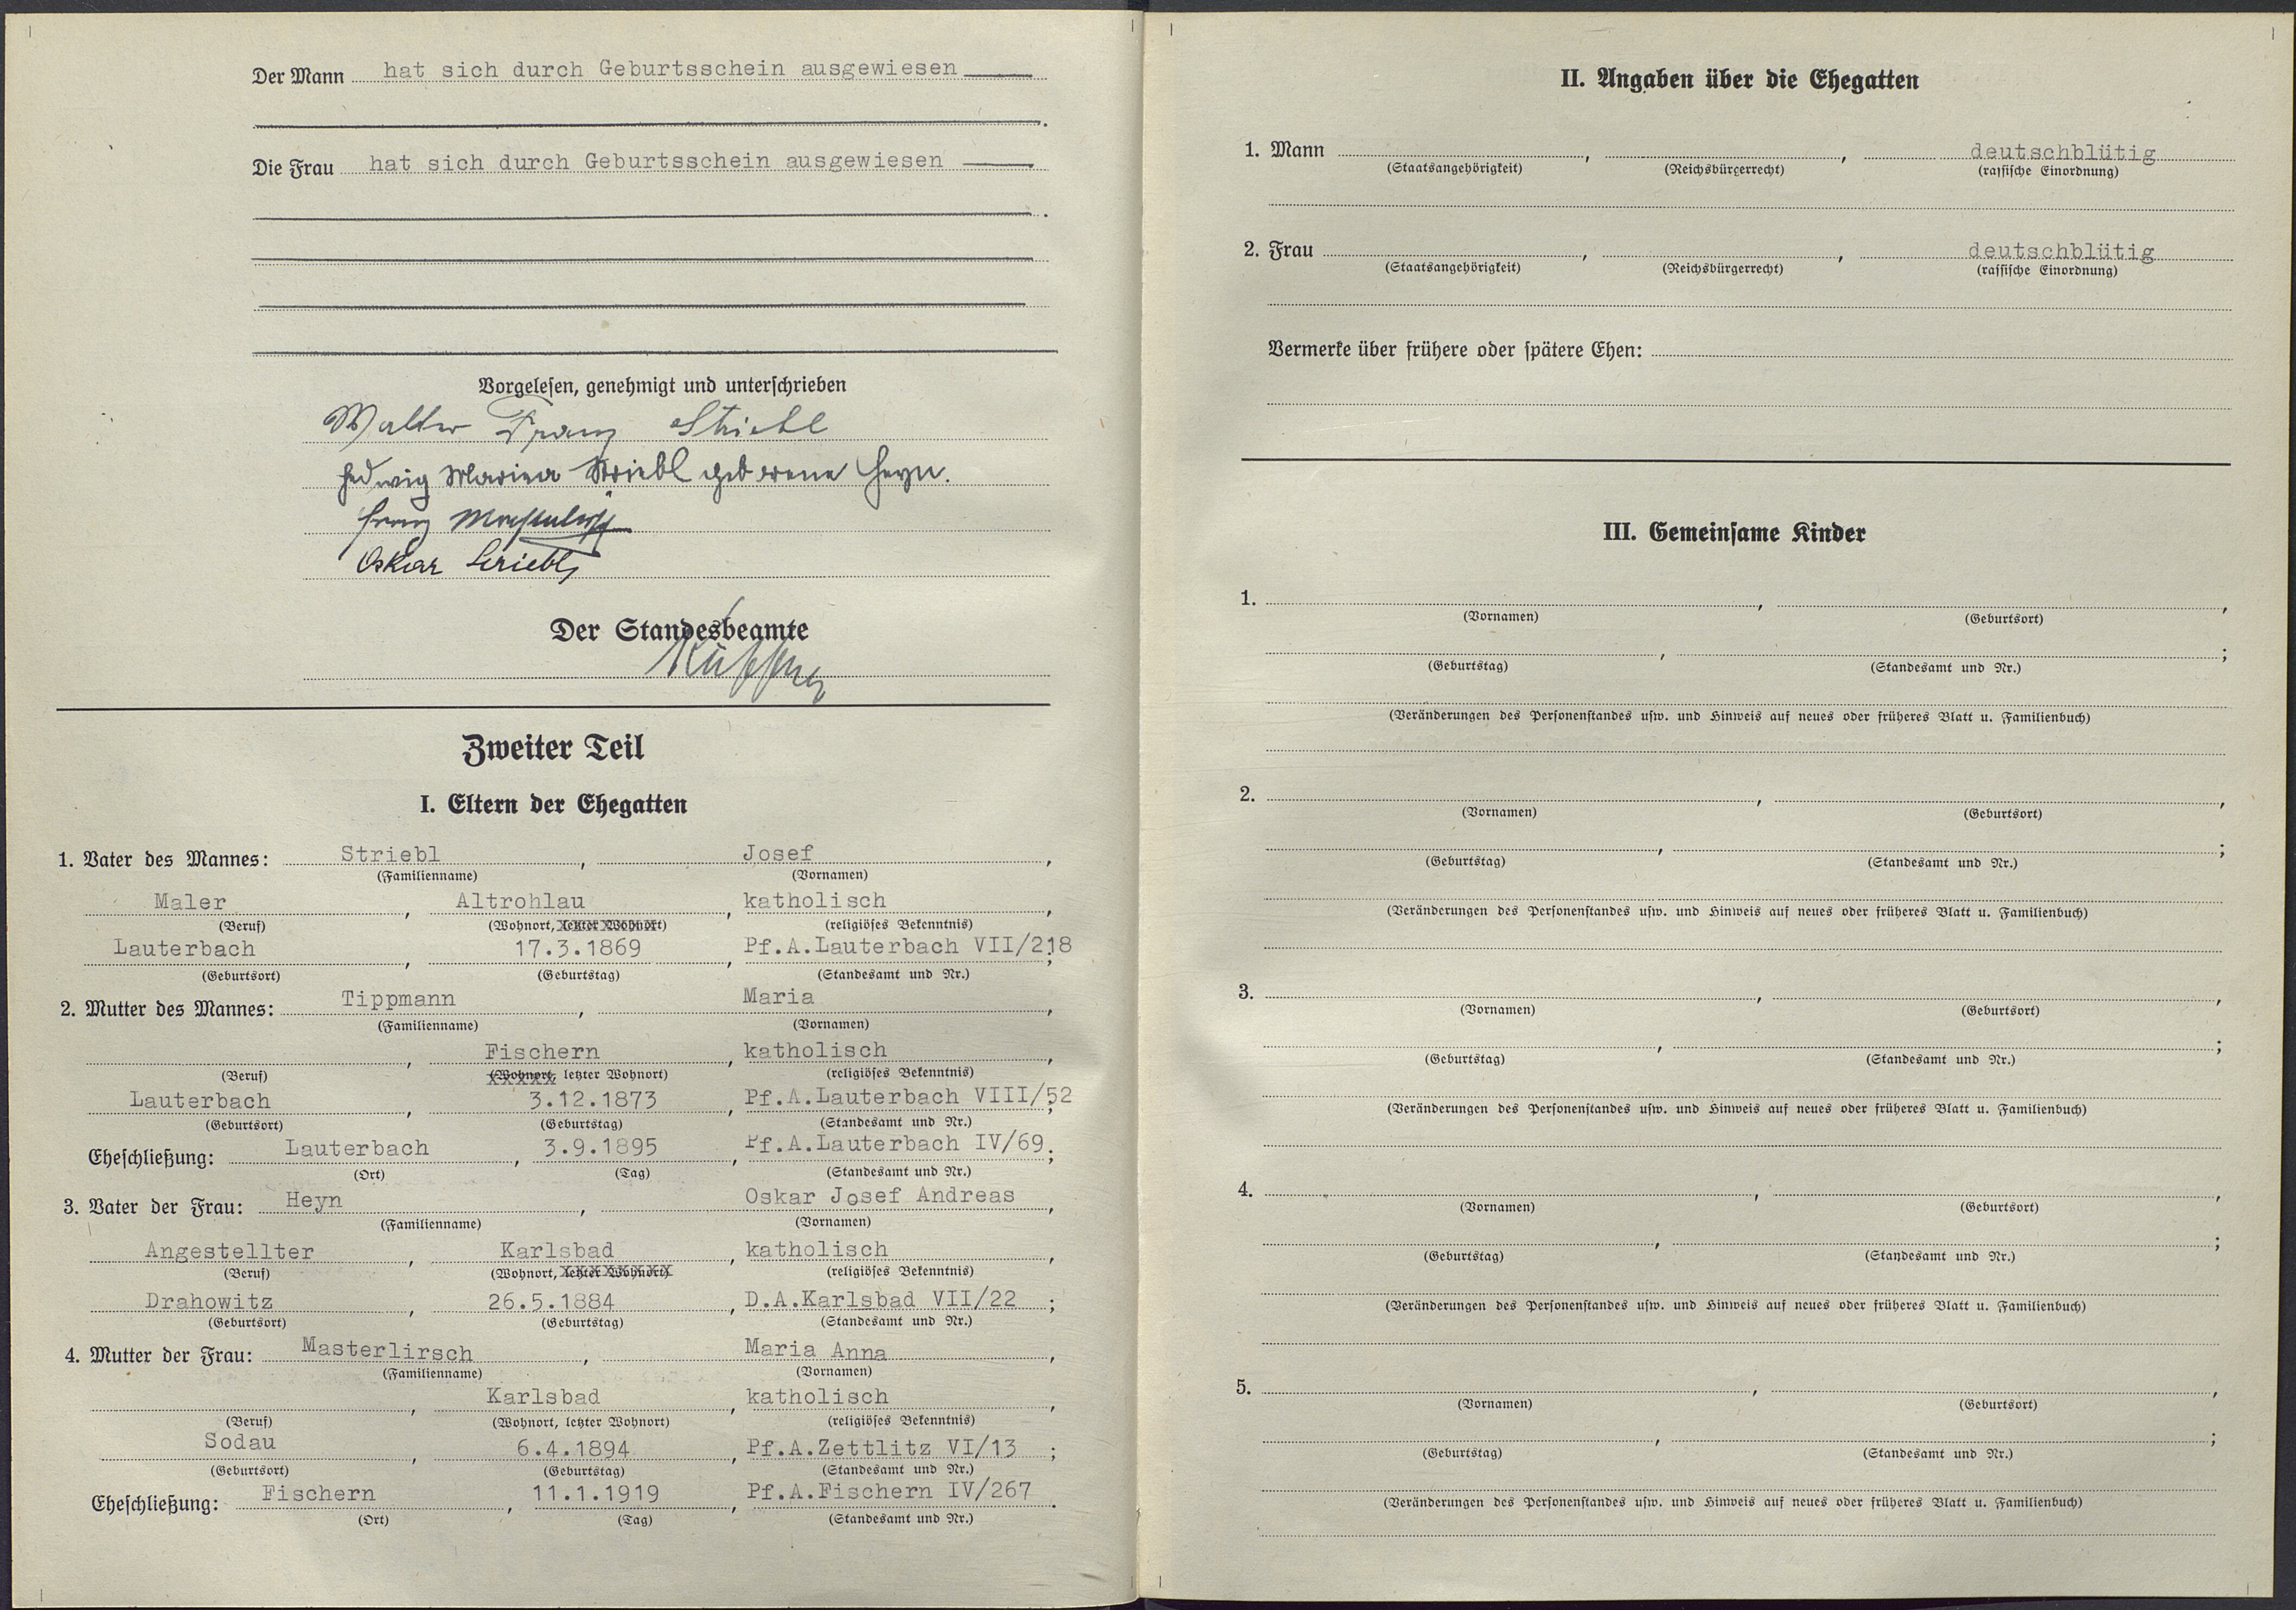 Der Mann hat sich durch Geburtsschein ausgewiesen
Die Frau hat sich durch Geburtsschein ausgewiesen
Vorgelesen, genehmigt und unterschrieben
Walter Franz Striebl
Hedwig Maria Striebl geborene Heyn.
Franz
Oskar Striebl
Der Standesbeamte
Zweiter Teil
I. Eltern der Ehegatten
1. Vater des Mannes: Striebl, Josef,
(Familienname) (Vornamen)
Maler, Altrohlau, katholisch,
(Beruf) (Wohnort, letzter Wohnort) (religiöses Bekenntnis)
Lauterbach, 17.3.1869, Pf.A.Lauterbach VII/218;
(Geburtsort) (Geburtstag) (Standesamt und Nr.)
2. Mutter des Mannes: Tippmann, Maria,
(Familienname) (Vornamen)
, Fischern, katholisch,
(Beruf) (Wohnort, letzter Wohnort) (religiöses Bekenntnis)
Lauterbach, 3.12.1873, Pf.A.Lauterbach VIII/52;
(Geburtsort) (Geburtstag) (Standesamt und Nr.)
Eheschließung: Lauterbach, 3.9.1895, Pf.A.Lauterbach IV/69.;
(Ort) (Tag) (Standesamt und Nr.)
3. Vater der Frau: Heyn, Oskar Josef Andreas,
(Familienname) (Vornamen)
Angestellter, Karlsbad, katholisch,
(Beruf) (Wohnort, letzter Wohnort) (religiöses Bekenntnis)
Drahowitz, 26.5.1884, D.A.Karlsbad VII/22;
(Geburtsort) (Geburtstag) (Standesamt und Nr.)
4. Mutter der Frau: Masterlirsch, Maria Anna,
(Familienname) (Vornamen)
, Karlsbad, katholisch,
(Beruf) (Wohnort, letzter Wohnort) (religiöses Bekenntnis)
Sodau, 6.4.1894, Pf.A.Zettlitz VI/13;
(Geburtsort) (Geburtstag) (Standesamt und Nr.)
Eheschließung: Fischern, 11.1.1919, Pf.A.Fischern IV/267.
(Ort) (Tag) (Standesamt und Nr.)
II. Angaben über die Ehegatten
1. Mann , , deutschblütig
(Staatsangehörigkeit) (Reichsbürgerrecht) (rassische Einordnung)
2. Frau , , deutschblütig
(Staatsangehörigkeit) (Reichsbürgerrecht) (rassische Einordnung)
Vermerke über frühere oder spätere Ehen:
III. Gemeinsame Kinder
1. , ,
(Vornamen) (Geburtsort)
, ;
(Geburtstag) (Standesamt und Nr.)
(Veränderungen des Personenstandes usw. und Hinweis auf neues oder früheres Blatt u. Familienbuch)
2. , ,
(Vornamen) (Geburtsort)
, ;
(Geburtstag) (Standesamt und Nr.)
(Veränderungen des Personenstandes usw. und Hinweis auf neues oder früheres Blatt u. Familienbuch)
3. , ,
(Vornamen) (Geburtsort)
, ;
(Geburtstag) (Standesamt und Nr.)
(Veränderungen des Personenstandes usw. und Hinweis auf neues oder früheres Blatt u. Familienbuch)
4. , ,
(Vornamen) (Geburtsort)
, ;
(Geburtstag) (Standesamt und Nr.)
(Veränderungen des Personenstandes usw. und Hinweis auf neues oder früheres Blatt u. Familienbuch)
5. , ,
(Vornamen) (Geburtsort)
, ;
(Geburtstag) (Standesamt und Nr.)
(Veränderungen des Personenstandes usw. und Hinweis auf neues oder früheres Blatt u. Familienbuch)